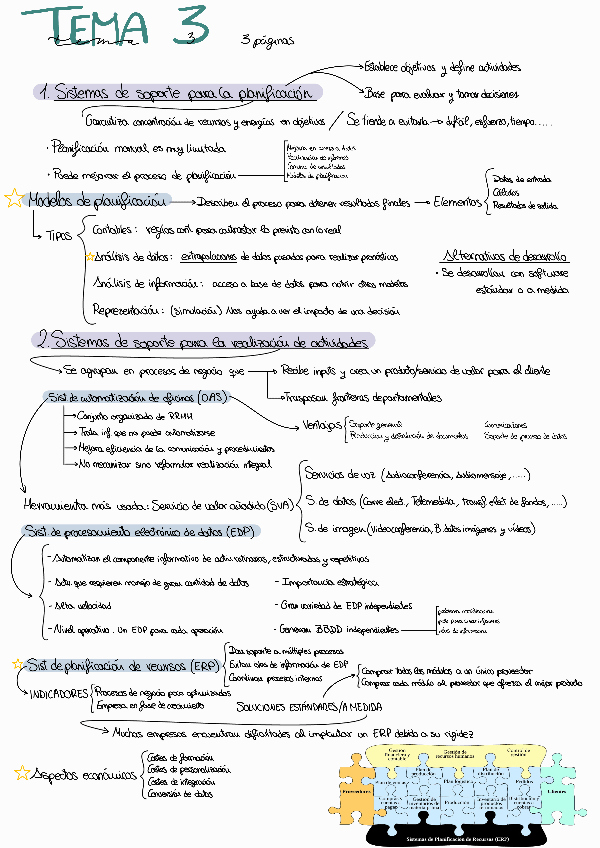 TEMA 3
tema 3 3 páginas
→ Establece objetivos y define actividades
1. Sistemas de soporte para la planificación
→ Base para evaluar y tomar decisiones
Garantiza concentración de recursos y energías en objetivos / Se tiende a evitarla → difícil, esfuerzo, tiempo.....
· Planificación manual es muy limitada
· Puede mejorar el proceso de planificación
Modelos de planificación → Describen el proceso para obtener resultados finales → Elementos
Datos de entrada
Cálculos
Resultados de salida
→ TIPOS
Contables: reglas cont. para contrastar lo previsto con lo real
Análisis de datos: extrapolaciones de datos pasados para realizar pronósticos
Análisis de información: acceso a base de datos para nutrir otros modelos
Representación: (simulación) Nos ayuda a ver el impacto de una decisión
Alternativas de desarrollo
· Se desarrollan con software
estándar o a medida
2. Sistemas de soporte para la realización de actividades
→ Se agrupan en procesos de negocio que
→ Recibe inputs y crea un producto/servicio de valor para el cliente
→ Traspasan fronteras departamentales
Sist. de automatización de oficinas (OAS)
→ Conjunto organizado de RRHH
→ Trata inf. que no puede automatizarse
→ Mejora eficiencia de la comunicación y procedimientos
→ No mecanizar sino reformular realización integral
→ Ventajas
Soporte general
Producción y distribución de documentos
Comunicaciones
Soporte de proceso de datos
Herramienta más usada: Servicio de valor añadido (SVA)
Servicios de voz (Audioconferencia, Audiomensaje, .....)
S. de datos (Correo elect., Telemedida, Transf. elect. de fondos, ....)
S. de imagen (Videoconferencia, B. datos imágenes y vídeos)
Sist. de procesamiento electrónico de datos (EDP)
- Automatizan el componente informativo de activ. rutinarias, estructuradas y repetitivas
- Activ. que requieren manejo de gran cantidad de datos
- Alta velocidad
- Nivel operativo. Un EDP para cada operación
- Importancia estratégica
- Gran variedad de EDP independientes
- Generan BBDD independientes
Sist. de planificación de recursos (ERP)
Dan soporte a múltiples procesos
Evitan islas de información de EDP
Coordinan procesos internos
→ INDICADORES
Procesos de negocio poco optimizados
Empresa en fase de crecimiento
SOLUCIONES ESTÁNDARES/A MEDIDA
Comprar todos los módulos a un único proveedor
Comprar cada módulo al proveedor que ofrezca el mejor producto
→ Muchas empresas encuentran dificultades al implantar un ERP debido a su rigidez
Aspectos económicos
Costes de formación
Costes de personalización
Costes de integración
Conversión de datos
Gestión financiera y contable
Gestión de recursos humanos
Control de gestión
Proveedores
Clientes
Producción
Sistemas de Planificación de Recursos (ERP)